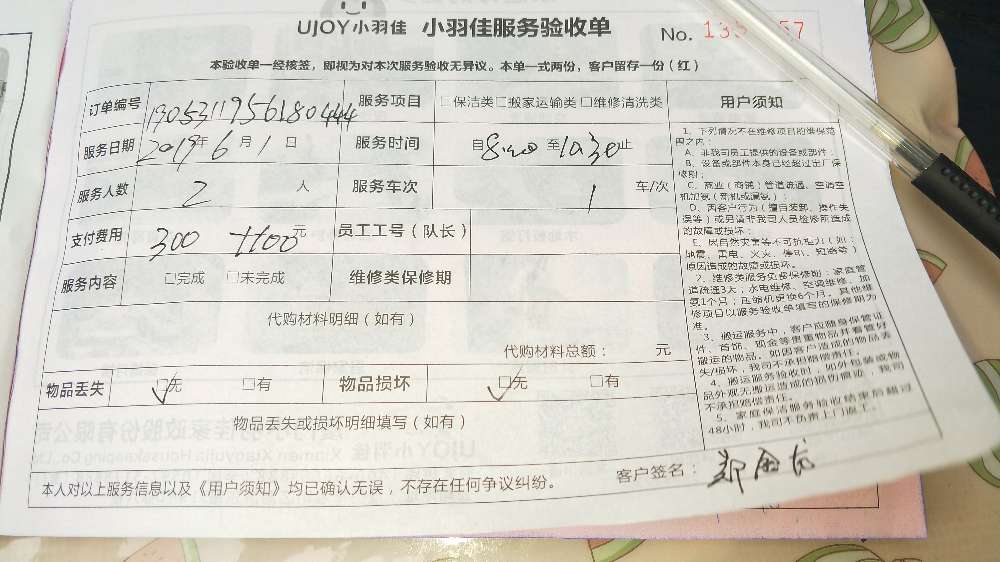 UJOY小羽佳 小羽佳服务验收单 No.
本验收单一经核签，即视为对本次服务验收无异议。本单一式两份，客户留存一份（红）
订单编号 1905311956180444 服务项目 □保洁类□搬家运输类□维修清洗类
服务日期 2019年6月1日 服务时间 自8:20至10:30止
服务人数 2人 服务车次 1车/次
支付费用 300 +1100元 员工工号（队长）
服务内容 □完成 □未完成 维修类保修期
代购材料明细（如有）
代购材料总额： 元
物品丢失 ☑无 □有 物品损坏 ☑无 □有
物品丢失或损坏明细填写（如有）
本人对以上服务信息以及《用户须知》均已确认无误，不存在任何争议纠纷。
客户签名：
用户须知
1、下列情况不在维修项目的维保范
围之内：
A、非我司员工提供的设备或部件；
B、设备或部件本身已经超过出厂保
修期；
C、商业（商铺）管道疏通、空调空
机加氨（新机或漏氨）；
D、因客户行为（擅自装卸、操作失
误等）或另请非我司人员检修而造成
的故障或损坏；
E、因自然灾害等不可抗拒力（如：
地震、雷电、火灾、停电、短路等）
原因造成的故障或损坏。
2、维修类服务免费保修期：家庭管
道疏通3天；水电维修、空调维修、加
氨1个月；压缩机更换6个月，其他维
修项目以服务验收单填写的保修期为
准。
3、搬运服务中，客户应随身保管证
件、首饰、现金等贵重物品并看管好
搬运的物品。如因客户造成的物品丢
失/损坏，我司不承担赔偿责任。
4、搬运服务验收时，如外包装或物
品外观无搬运造成的损伤痕迹，我司
不承担赔偿责任。
5、家庭保洁服务验收结束后超过
48小时，我司不负责上门返工。